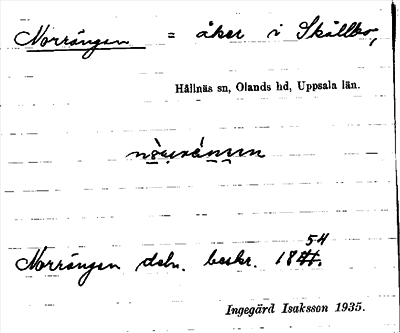 Norrängen = åker i Skållbo,
Hållnäs sn, Olands hd, Uppsala län.
Norrängen deln. beskr. 18 54
Ingegärd Isaksson 1935.